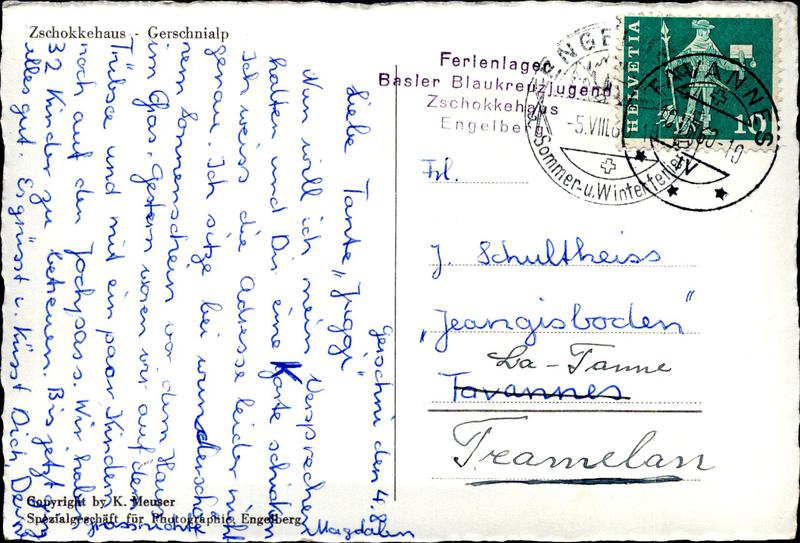 Zschokkehaus - Gerschnialp
Gerschni den 4.8.
Liebe Tante „Juggi"
Nun will ich mein Versprechen
halten und Dir eine Karte schicken
Ich weiss die Adresse leider nicht
genau. Ich sitze bei wunderschö-
nem Sonnenschein vor dem Haus
im Gras. Gestern waren wir auf der
Trübsee und mit ein paar Kindern
noch auf den Jochpass. Wir haben
32 Kinder zu betreuen. Bis jetzt ging
alles gut. Es grüsst u. küsst Dich, Deine
Magdalen
Copyright by K. Meuser
Spezialgeschäft für Photographie, Engelberg
Ferienlager
Basler Blaukreuzjugend
Zschokkehaus
Engelberg
ENGELBERG
-5.VIII.60-18
Sommer- u. Winterferien
HELVETIA
10
TAVANNES
60-10
Frl.
J. Schultheiss
„Jeangisboden"
La-Tanne
Tavannes
Tramelan